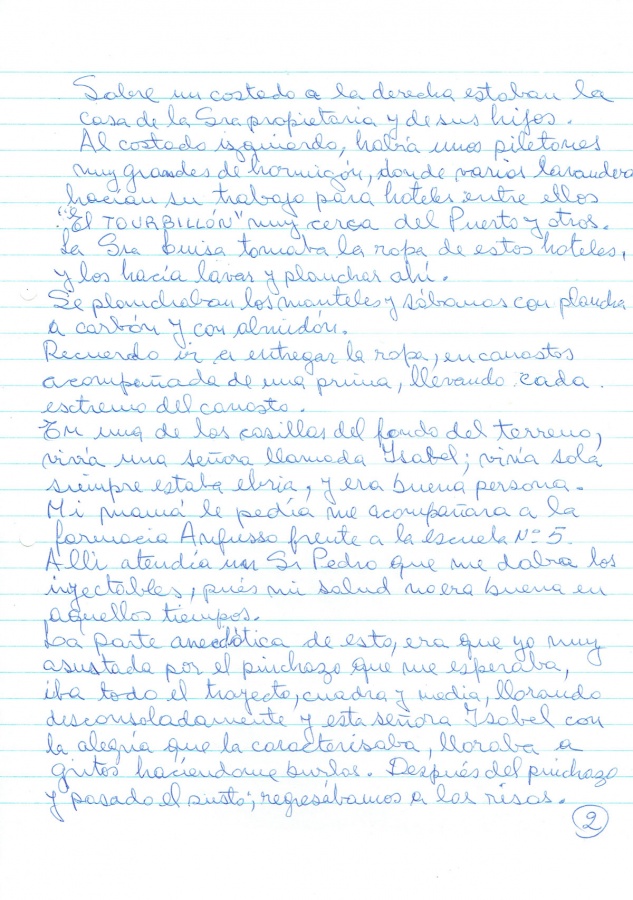 Sobre un costado a la derecha estaban la
casa de la Sra propietaria y de sus hijos.
Al costado izquierdo, había unos piletones
muy grandes de hormigón, donde varias lavandera
hacían su trabajo para hoteles entre ellos
"El TOURBILLÓN" muy cerca del Puerto y otros.
La Sra Luisa tomaba la ropa de estos hoteles,
y los hacía lavar y planchar ahí.
Se planchaban los manteles y sábanas con plancha
a carbón y con almidón.
Recuerdo ir a entregar la ropa, en canastos
acompañada de una prima, llevando cada
esctremo del canasto.
En una de las casillas del fondo del terreno,
vivía una señora llamada Isabel; vivía sola
siempre estaba ebria, y era buena persona.
Mi mamá le pedía me acompañara a la
farmacia Anfusso frente a la escuela Nº 5.
Allí atendía un Sr Pedro que me daba los
injectables, pués mi salud no era buena en
aquellos tiempos.
La parte anecdótica de esto, era que yo muy
asustada por el pinchazo que me esperaba,
iba todo el trayecto, cuadra y media, llorando
desconsoladamente y esta señora Isabel con
la alegría que la caracterisaba, lloraba a
gritos haciéndome burlas. Después del pinchazo
y pasado el susto; regresábamos a las risas.
2